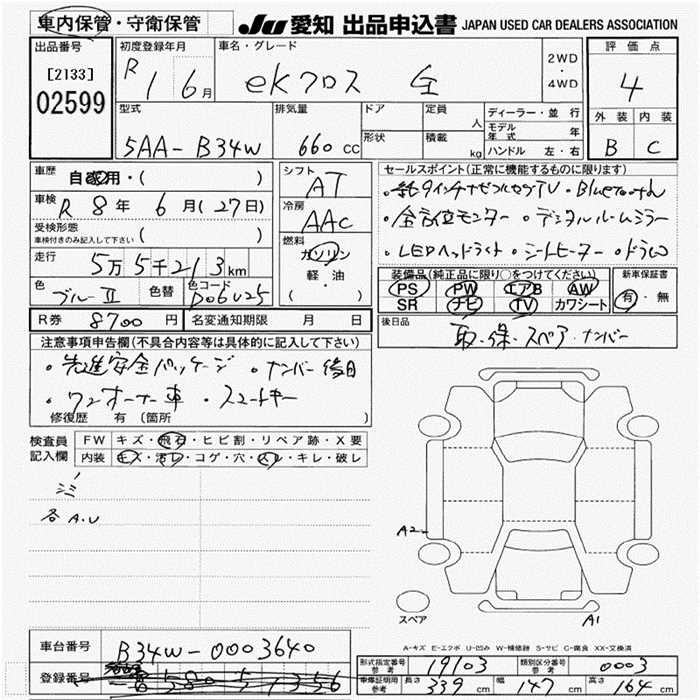 車内保管・守衛保管
JU 愛知 出品申込書 JAPAN USED CAR DEALERS ASSOCIATION
出品番号
[2133]
02599
初度登録年月
R 1 6月
車名・グレード
eKクロス G
2WD
・
4WD
評価点
4
外装 内装
B C
型式
5AA-B34W
排気量
660cc
ドア
形状
定員
人
積載
kg
ディーラー・並行
モデル年式 年
ハンドル 左・右
車歴
自家用・( )
車検 R 8年 6月(27日)
受検形態
車検付きのみ記入して下さい ( )
走行 5万5千213km
色 ブルーII 色替
色コード D06U25
シフト
AT
冷房
AAC
燃料
ガソリン
軽・油
( )
セールスポイント(正常に機能するものに限ります)
・純9インチナビフルセグTV・Bluetooth
・全方位モニター ・デジタルルームミラー
・LEDヘッドライト ・シートヒーター ・ドラレコ
装備品(純正品に限り○をつけてください)
PS PW エアB AW
SR ナビ TV カワシート
新車保証書
有・無
R券 8700円
名変通知期限 月 日
後日品
取・保・スペア・ナンバー
注意事項申告欄(不具合内容等は具体的に記入して下さい)
・先進安全パッケージ ・ナンバー後日
・ワンオーナー車 ・スマートキー
修復歴 有 (箇所 )
検査員
記入欄
FW キズ・飛石・ヒビ割・リペア跡・X要
内装 キズ・汚レ・コゲ・穴・スレ・キレ・破レ
各A.U
A2
A1
スペア
A-キズ E-エクボ U-凹み W-補修跡 S-サビ C-腐食 XX-交換済
車台番号 B34W-0003640
登録番号
型式指定番号
参考
19103
類別区分番号
参考
0003
車庫証明用
参考
長さ 339cm 幅 147cm 高さ 164cm